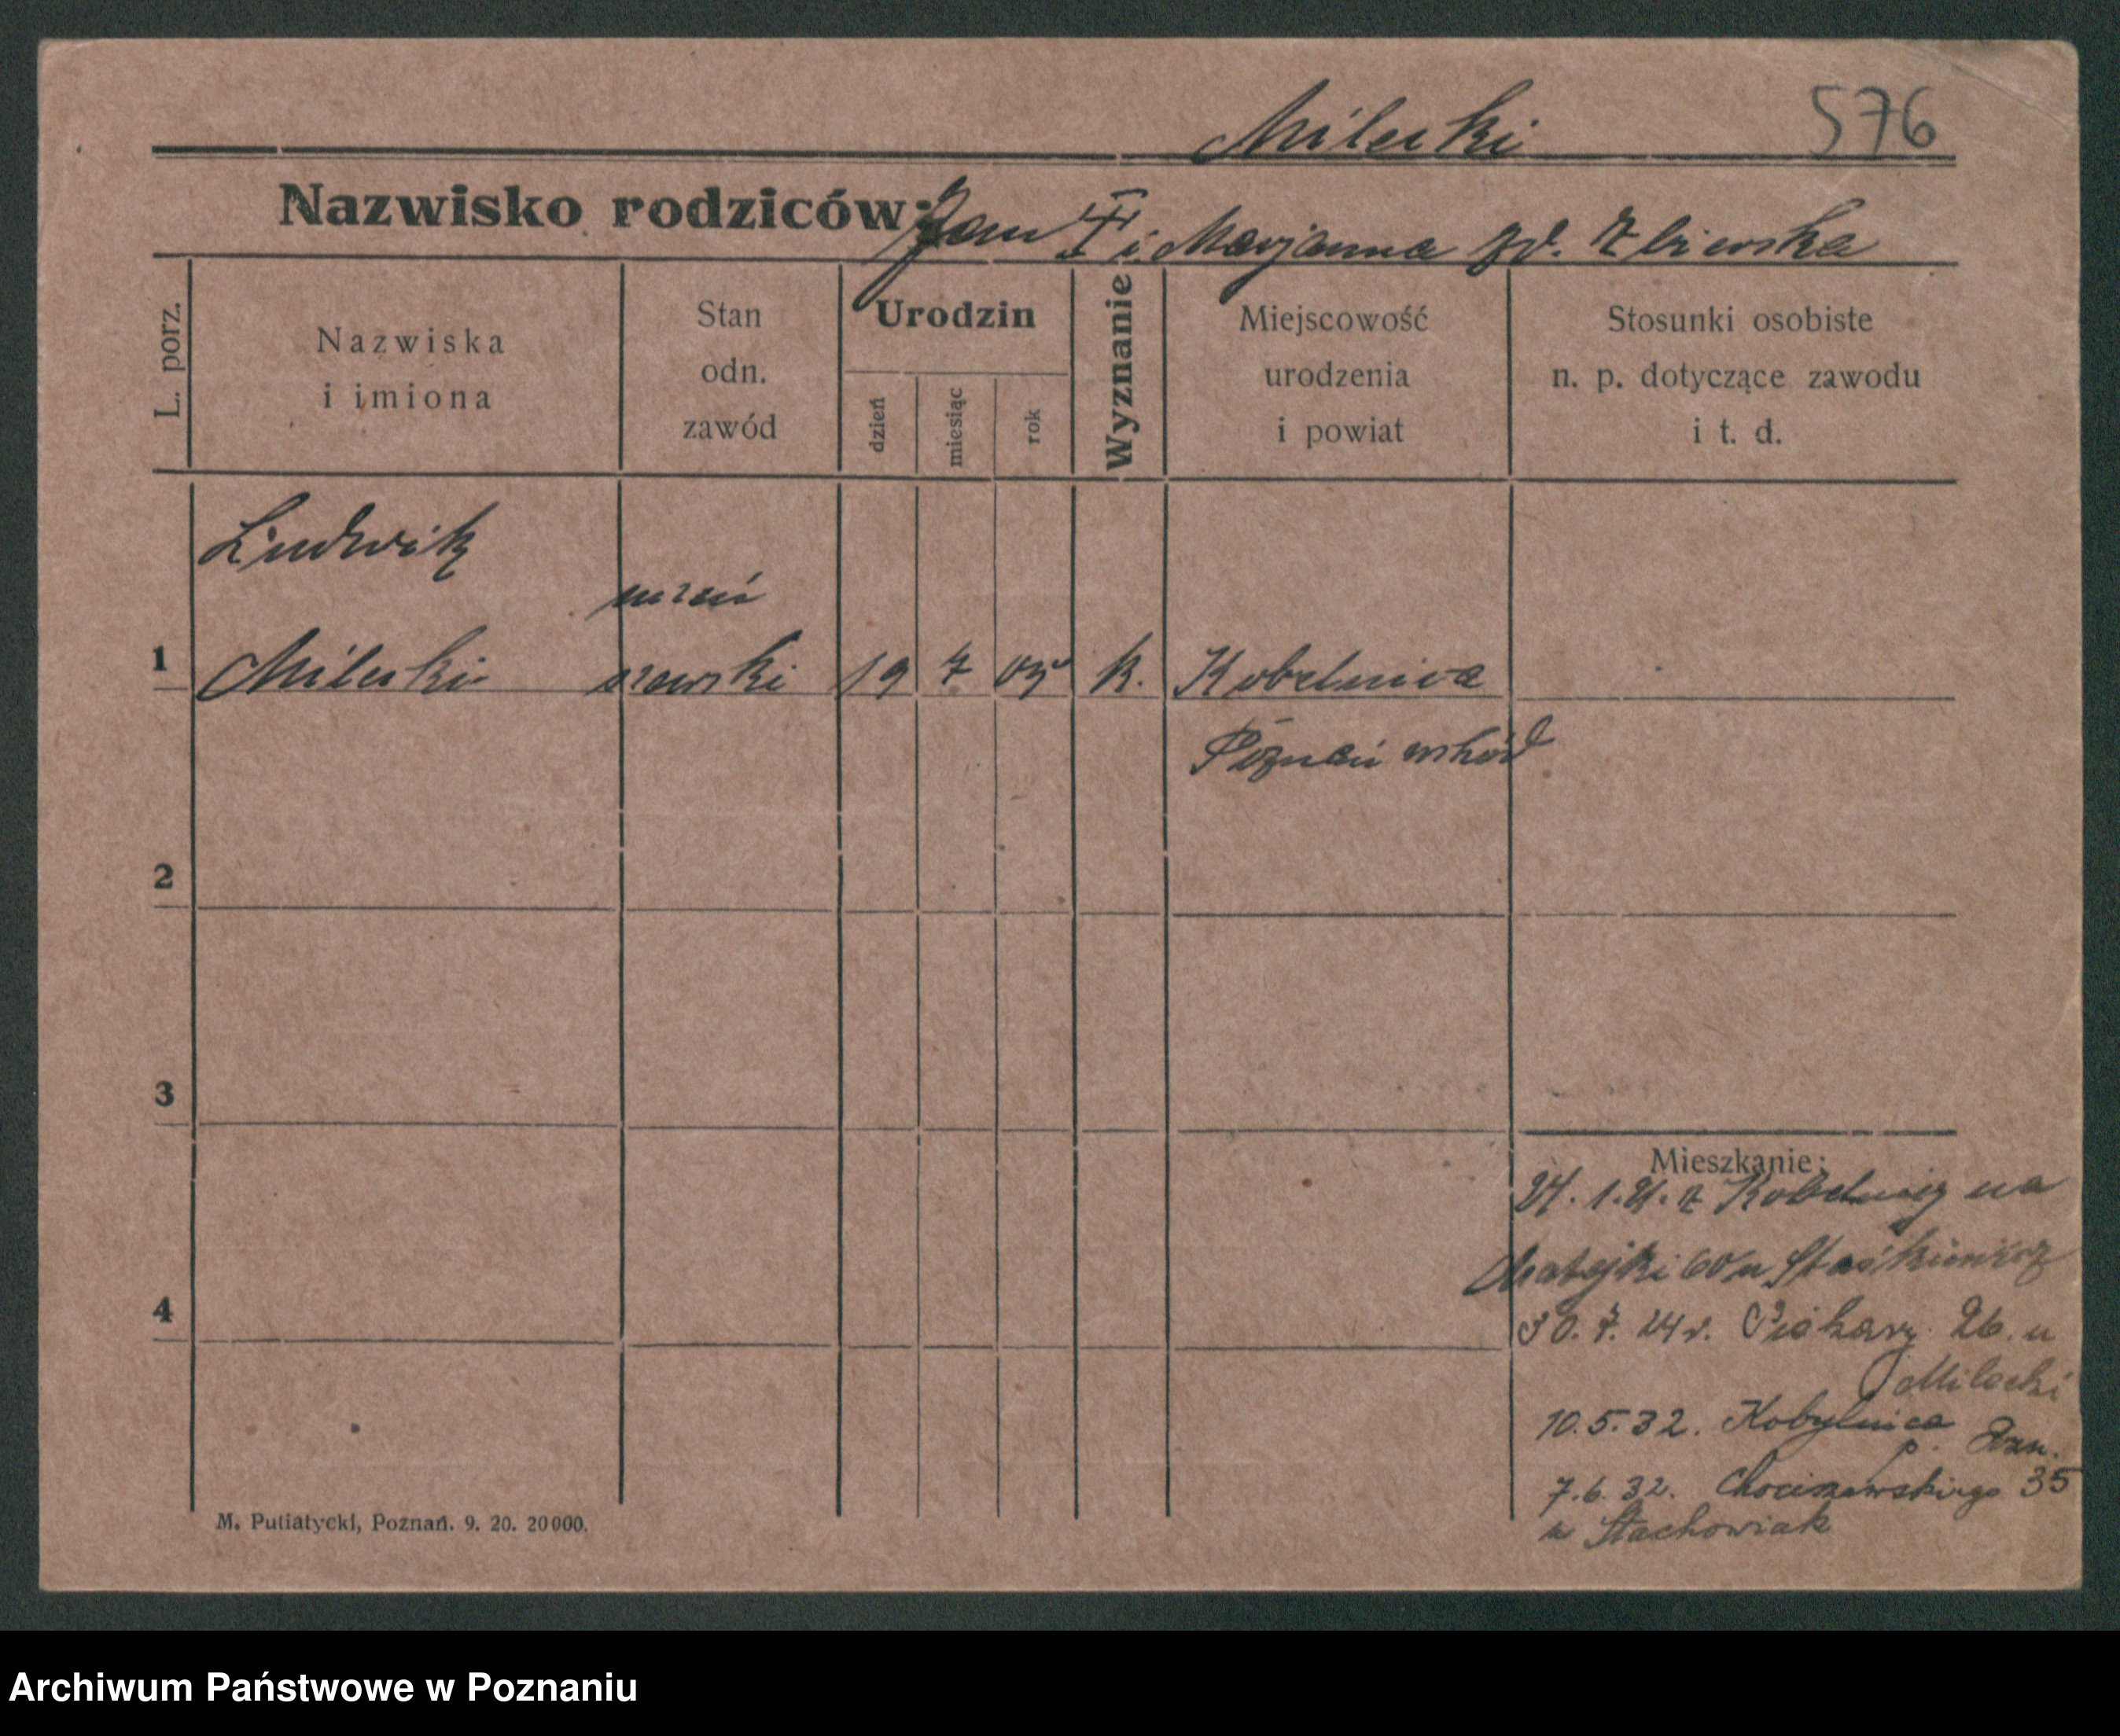 Milecki 576
Nazwisko rodziców: Jan i Marjanna
L. porz.
Nazwiska
i imiona
Stan
odn.
zawód
Urodzin
dzień
miesiąc
rok
Wyznanie
Miejscowość
urodzenia
i powiat
Stosunki osobiste
n. p. dotyczące zawodu
i t. d.
Ludwik
uczeń
1 Milecki szewski 19 7 05 k. Kobelnica
Poznań wschód
2
3
Mieszkanie:
24. 1. 21. z Kobelnicy na
Matejki 60 u
4
30. 7. 24 r. Piekary 26. u
Milecki
10.5.32. Kobylnica
p. Pozn.
7.6.32. Chociszewskiego 35
u Stachowiak
M. Putiatycki, Poznań. 9. 20. 20000.
Archiwum Państwowe w Poznaniu